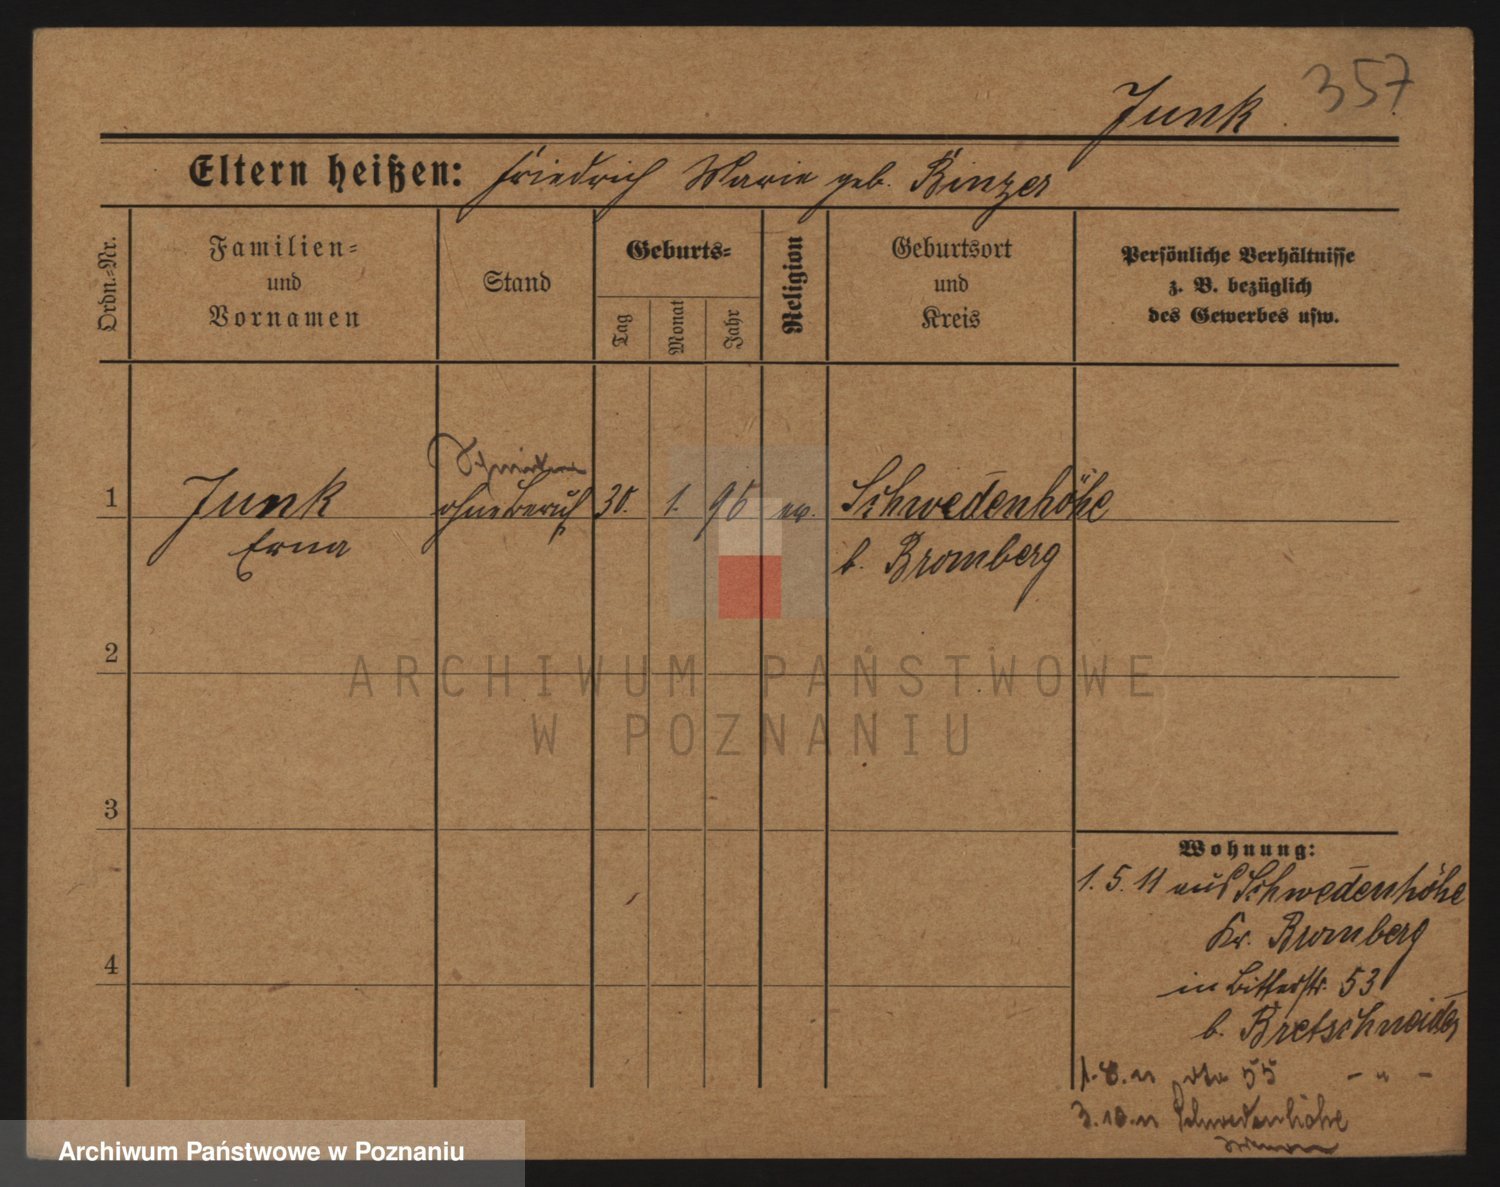 357
Junk.
Eltern heißen: Friedrich Marie geb. Binzer
Ordn.-Nr.
Familien-
und
Vornamen
Stand
Geburts-
Tag
Monat
Jahr
Religion
Geburtsort
und
Kreis
Persönliche Verhältnisse
z. B. bezüglich
des Gewerbes usw.
1 Junk ohne Beruf 30. 1. 96 ev. Schwedenhöhe
Erna b. Bromberg
2
3
4
Wohnung:
1. 5. 11 aus Schwedenhöhe
Kr. Bromberg
in Bitterstr. 53
b. Bretschneider
1. 8. 11 dto 55 – " –
3. 10. 11 Schwedenhöhe
ARCHIWUM PAŃSTWOWE
W POZNANIU
Archiwum Państwowe w Poznaniu